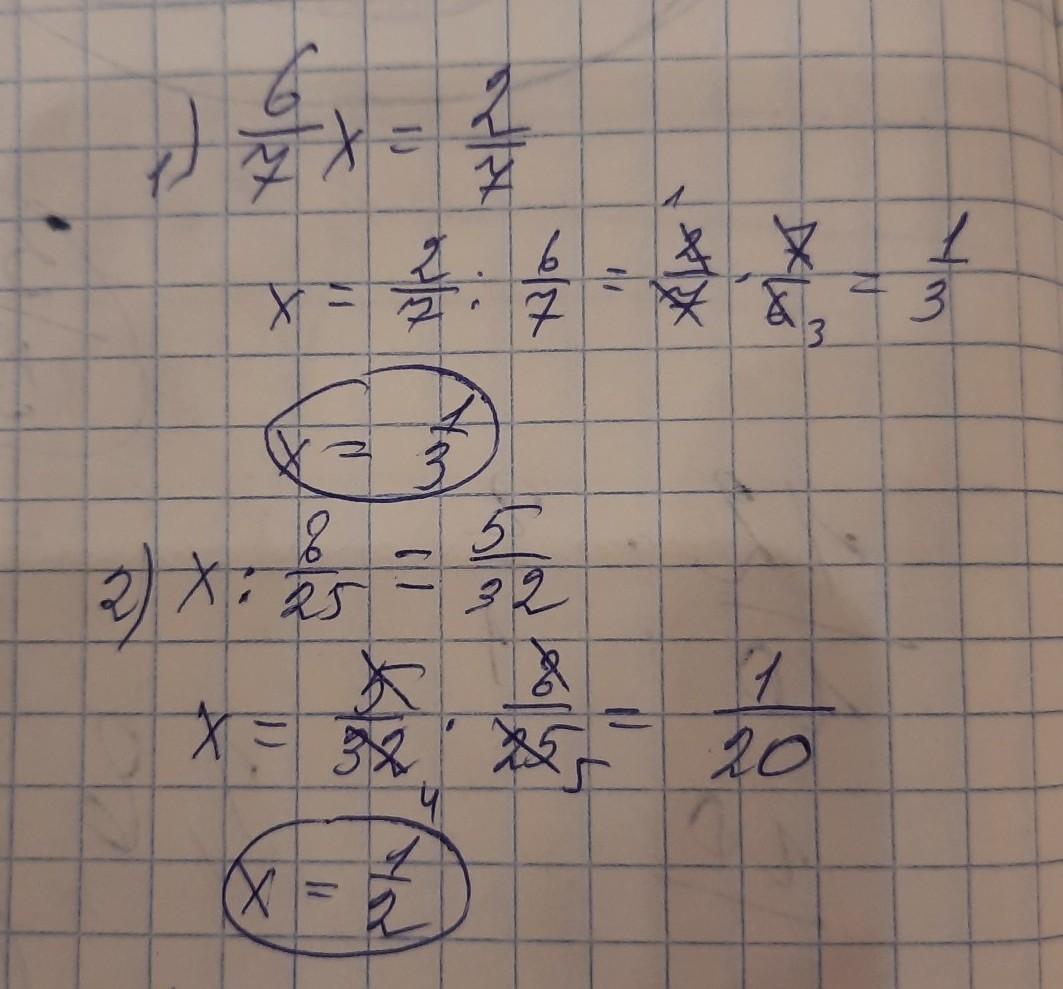 1) 6/7 x = 2/7
x = 2/7 : 6/7 = 2/7 1 · 7/6 3 = 1/3
x = 1/3
2) x : 8/25 = 5/32
x = 5/32 4 · 8/25 5 = 1/20
x = 1/2